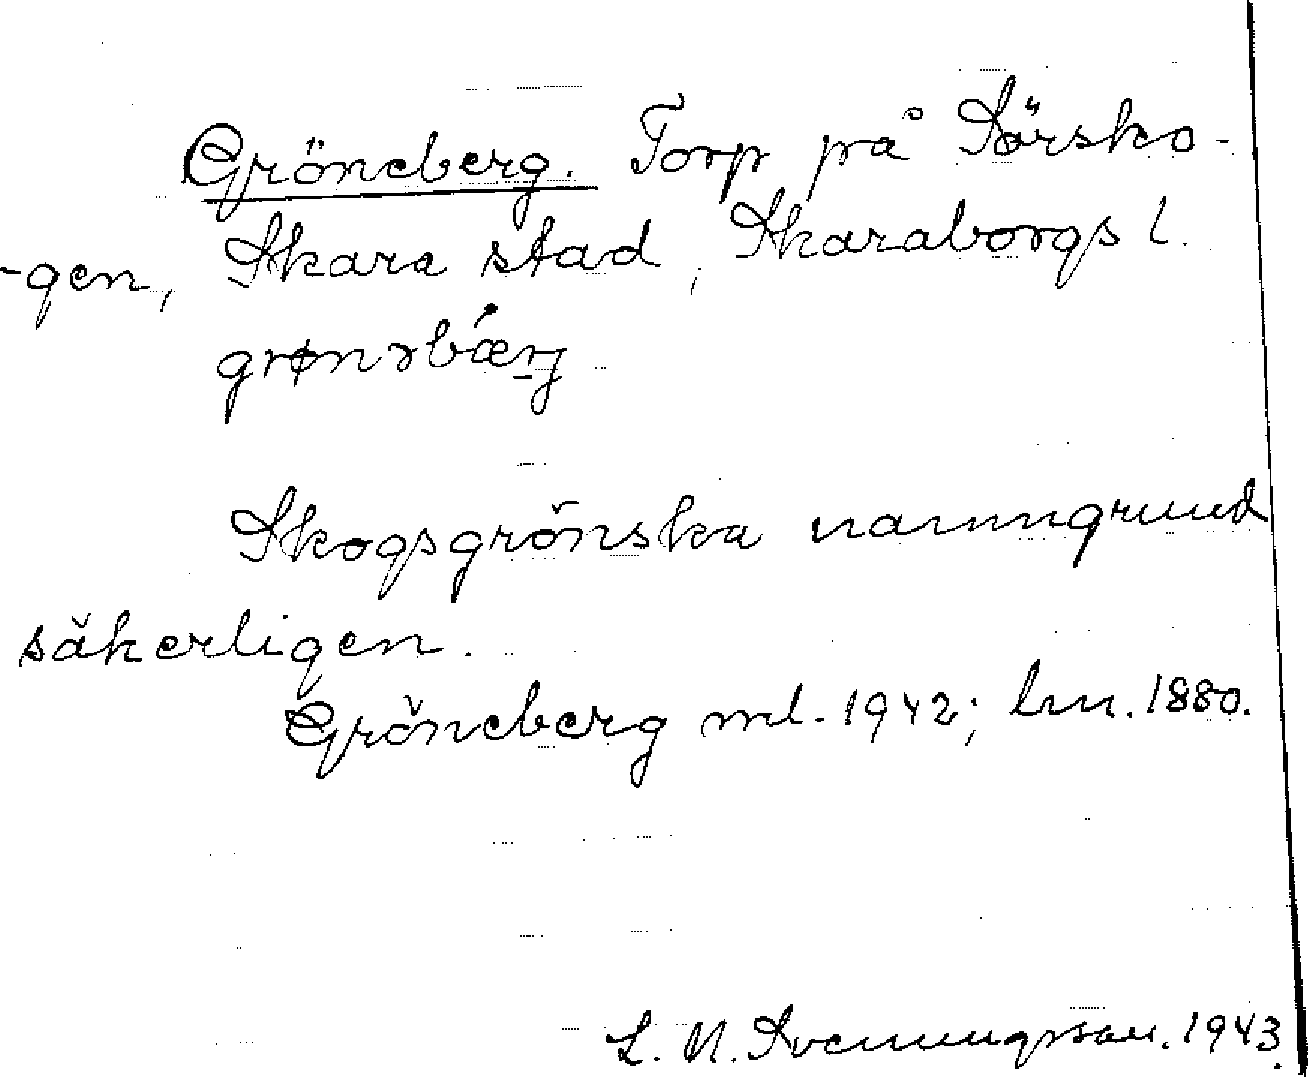 Gröneberg. Torp på Sörsko-
-gen, Skara stad, Skaraborgs l.
grønəbǽrj
Skogsgrönska namngrund
säkerligen.
Gröneberg ml. 1942; hm. 1880.
L. N. Svenungsson. 1943.